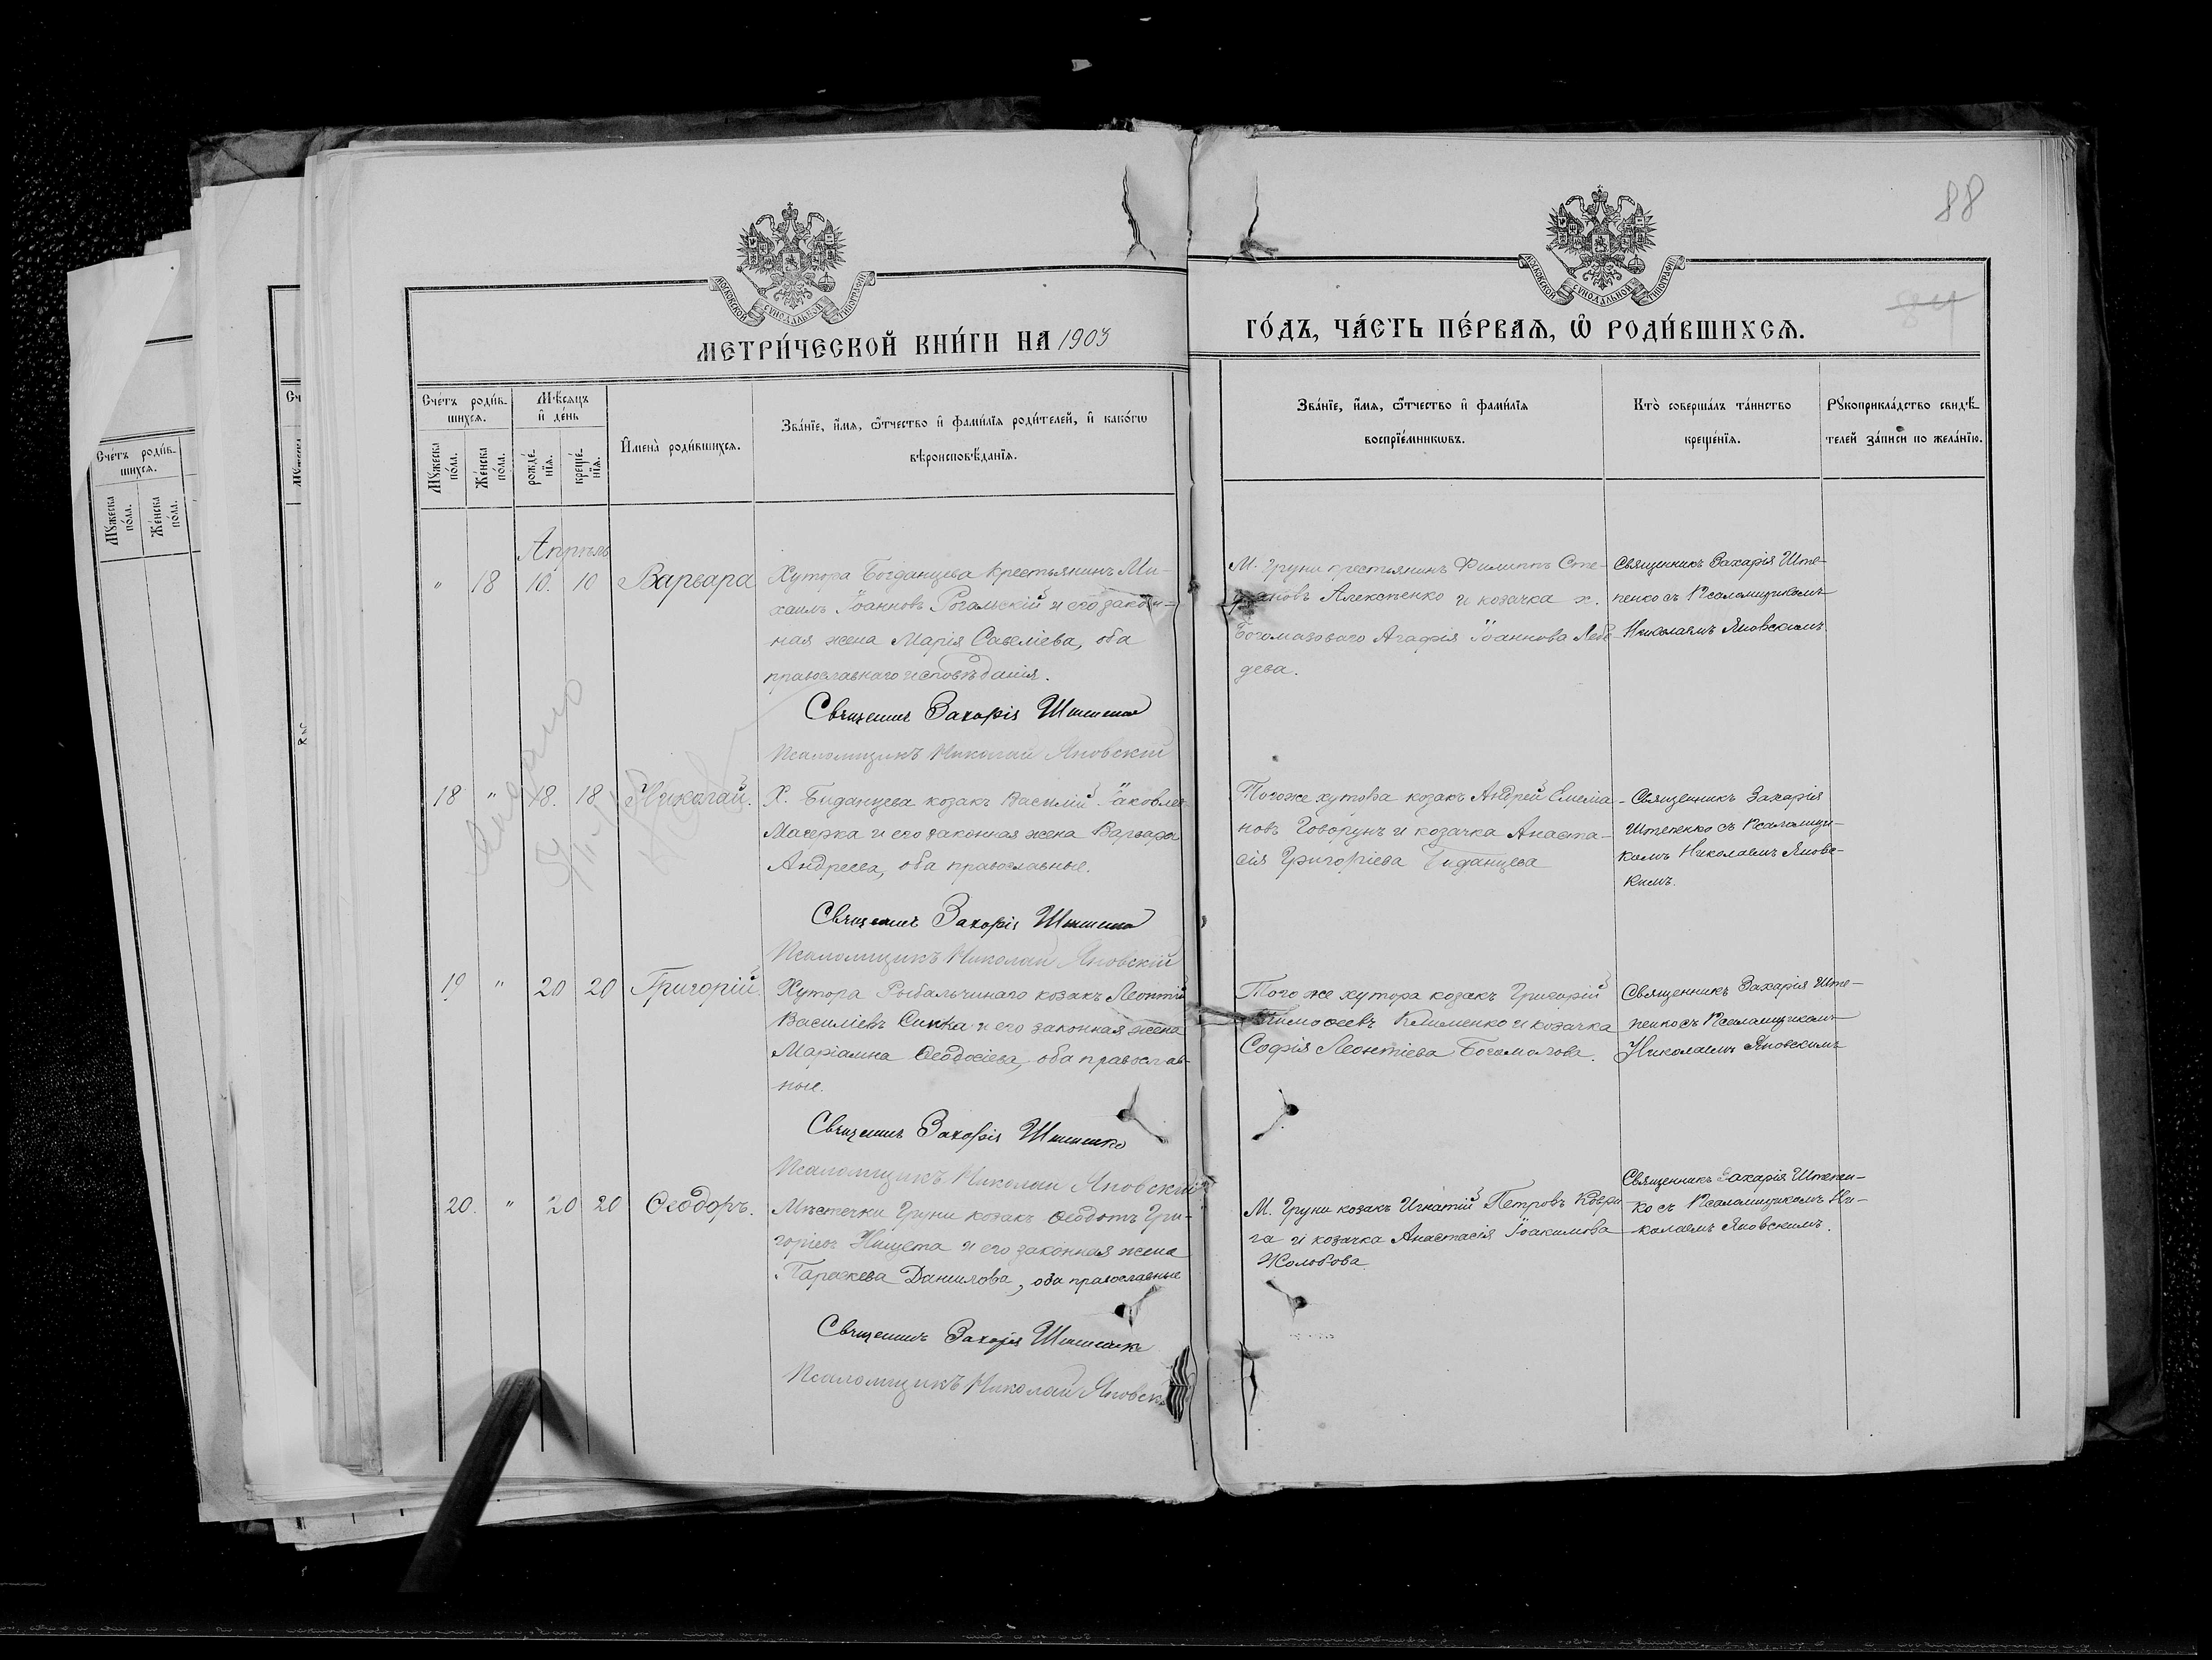 88
84
МОСКОВСКОЙ СѴНОДАЛЬНОЙ ТИПОГРАФІИ
МОСКОВСКОЙ СѴНОДАЛЬНОЙ ТИПОГРАФІИ
МЕТРИ́ЧЕСКОЙ КНИ́ГИ НА 1903
ГО́ДЪ, ЧА́СТЬ ПЕ́РВАѦ, Ѿ РОДИ́ВШИХСѦ.
Сче́тъ роди́в-
шихсѧ.
Мѣ́сѧцъ
и҆ де́нь
Мꙋ́жеска
по́ла.
Же́нска
по́ла.
рожде́-
нїѧ.
креще́-
нїѧ.
И҆мена̀ роди́вшихсѧ.
Зва́нїе, и҆́мѧ, ѻ҆́тчество и҆ фами́лїѧ роди́телей, и҆ како́гѡ
вѣроисповѣ́данїѧ.
Зва́нїе, и҆́мѧ, ѻ҆́тчество и҆ фами́лїѧ
воспрїе́мникѡвъ.
Кто̀ соверша́лъ та́инство
креще́нїѧ.
Рꙋкоприкла́дство свидѣ́-
телей за́писи по жела́нїю.
Сче́тъ роди́в-
шихсѧ.
Мꙋ́жеска
по́ла.
Же́нска
по́ла.
Апрѣль
" 18 10. 10 Варвара
Хутора Богданцева крестьянинъ Ми-
хаилъ Іоанновъ Рогальскій и его закон-
ная жена Марія Савеліева, оба
православнаго исповѣданія.
Священникъ Захарія Штепенко
Псаломщикъ Николай Яновскій
М. Груни крестьянинъ Филиппъ Сте-
фановъ Алексѣенко и козачка х.
Богомазоваго Агафія Іоаннова Лебе-
дева.
Священникъ Захарія Ште-
пенко съ Псаломщикомъ
Николаемъ Яновскимъ
18 " 18. 18 Николай.
Х. козакъ Василій Іаковлев
и его законная жена Варвара
Андреева, оба православные.
Священникъ Захарія Штепенко
Псаломщикъ Николай Яновскій
Того же хутора козакъ Андрей Емелiа-
новъ Говорунъ и козачка Анаста-
сія Григоріева
Священникъ Захарія
Штепенко съ Псаломщи-
комъ Николаемъ Яновс-
кимъ.
19 " 20 20 Григорій.
Хутора Рыбальчинаго козакъ Леонтій
Василіевъ и его законная жена
Маріамна Ѳеодосіева, оба православ-
ные.
Священникъ Захарія Штепенко
Псаломщикъ Николай Яновскій
Того же хутора козакъ Григорій
Тимоѳеевъ Клименко и козачка
Софія Леонтіева Богомолова.
Священникъ Захарія Ште-
пенко съ Псаломщикомъ
Николаемъ Яновскимъ
20. " 20 20 Ѳеодоръ.
Мѣстечка Груни козакъ Ѳеодотъ Гри-
горіевъ Нищета и его законная жена
Параскева Даниилова, оба православные
Священникъ Захарія Штепенко
Псаломщикъ Николай Яновскій
М. Груни козакъ Игнатій Петровъ Коври-
га и козачка Анастасія Іоакимова
Жолобова
Священникъ Захарія Штепен-
ко съ Псаломщикомъ Ни-
колаемъ Яновскимъ.